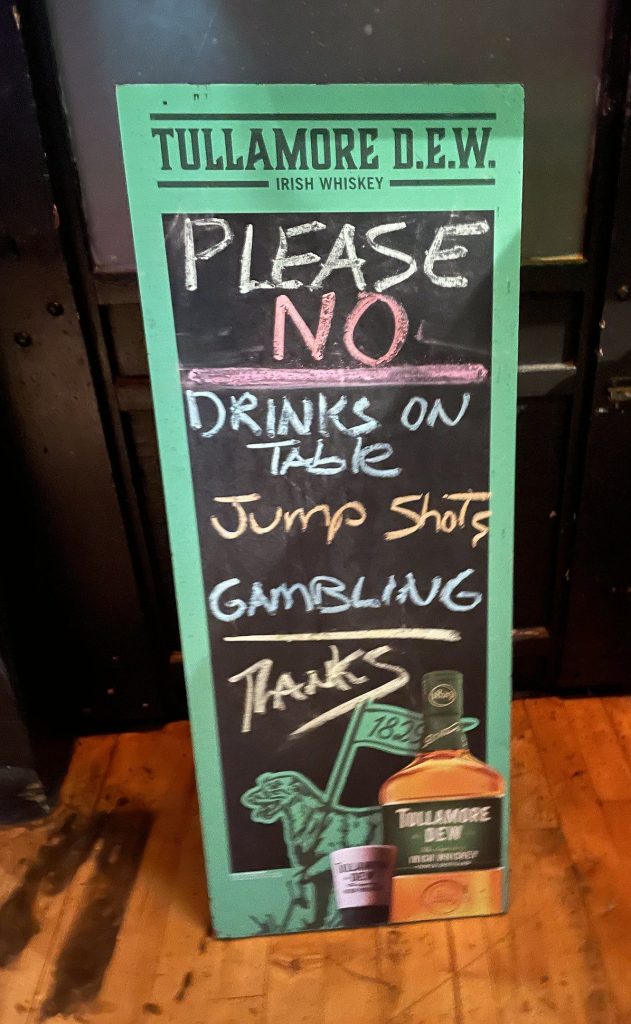 TULLAMORE D.E.W.
IRISH WHISKEY
PLEASE
NO
DRINKS ON
TABLE
Jump Shots
GAMBLING
THANKS
1829
TULLAMORE
DEW
IRISH WHISKEY
TULLAMORE
DEW